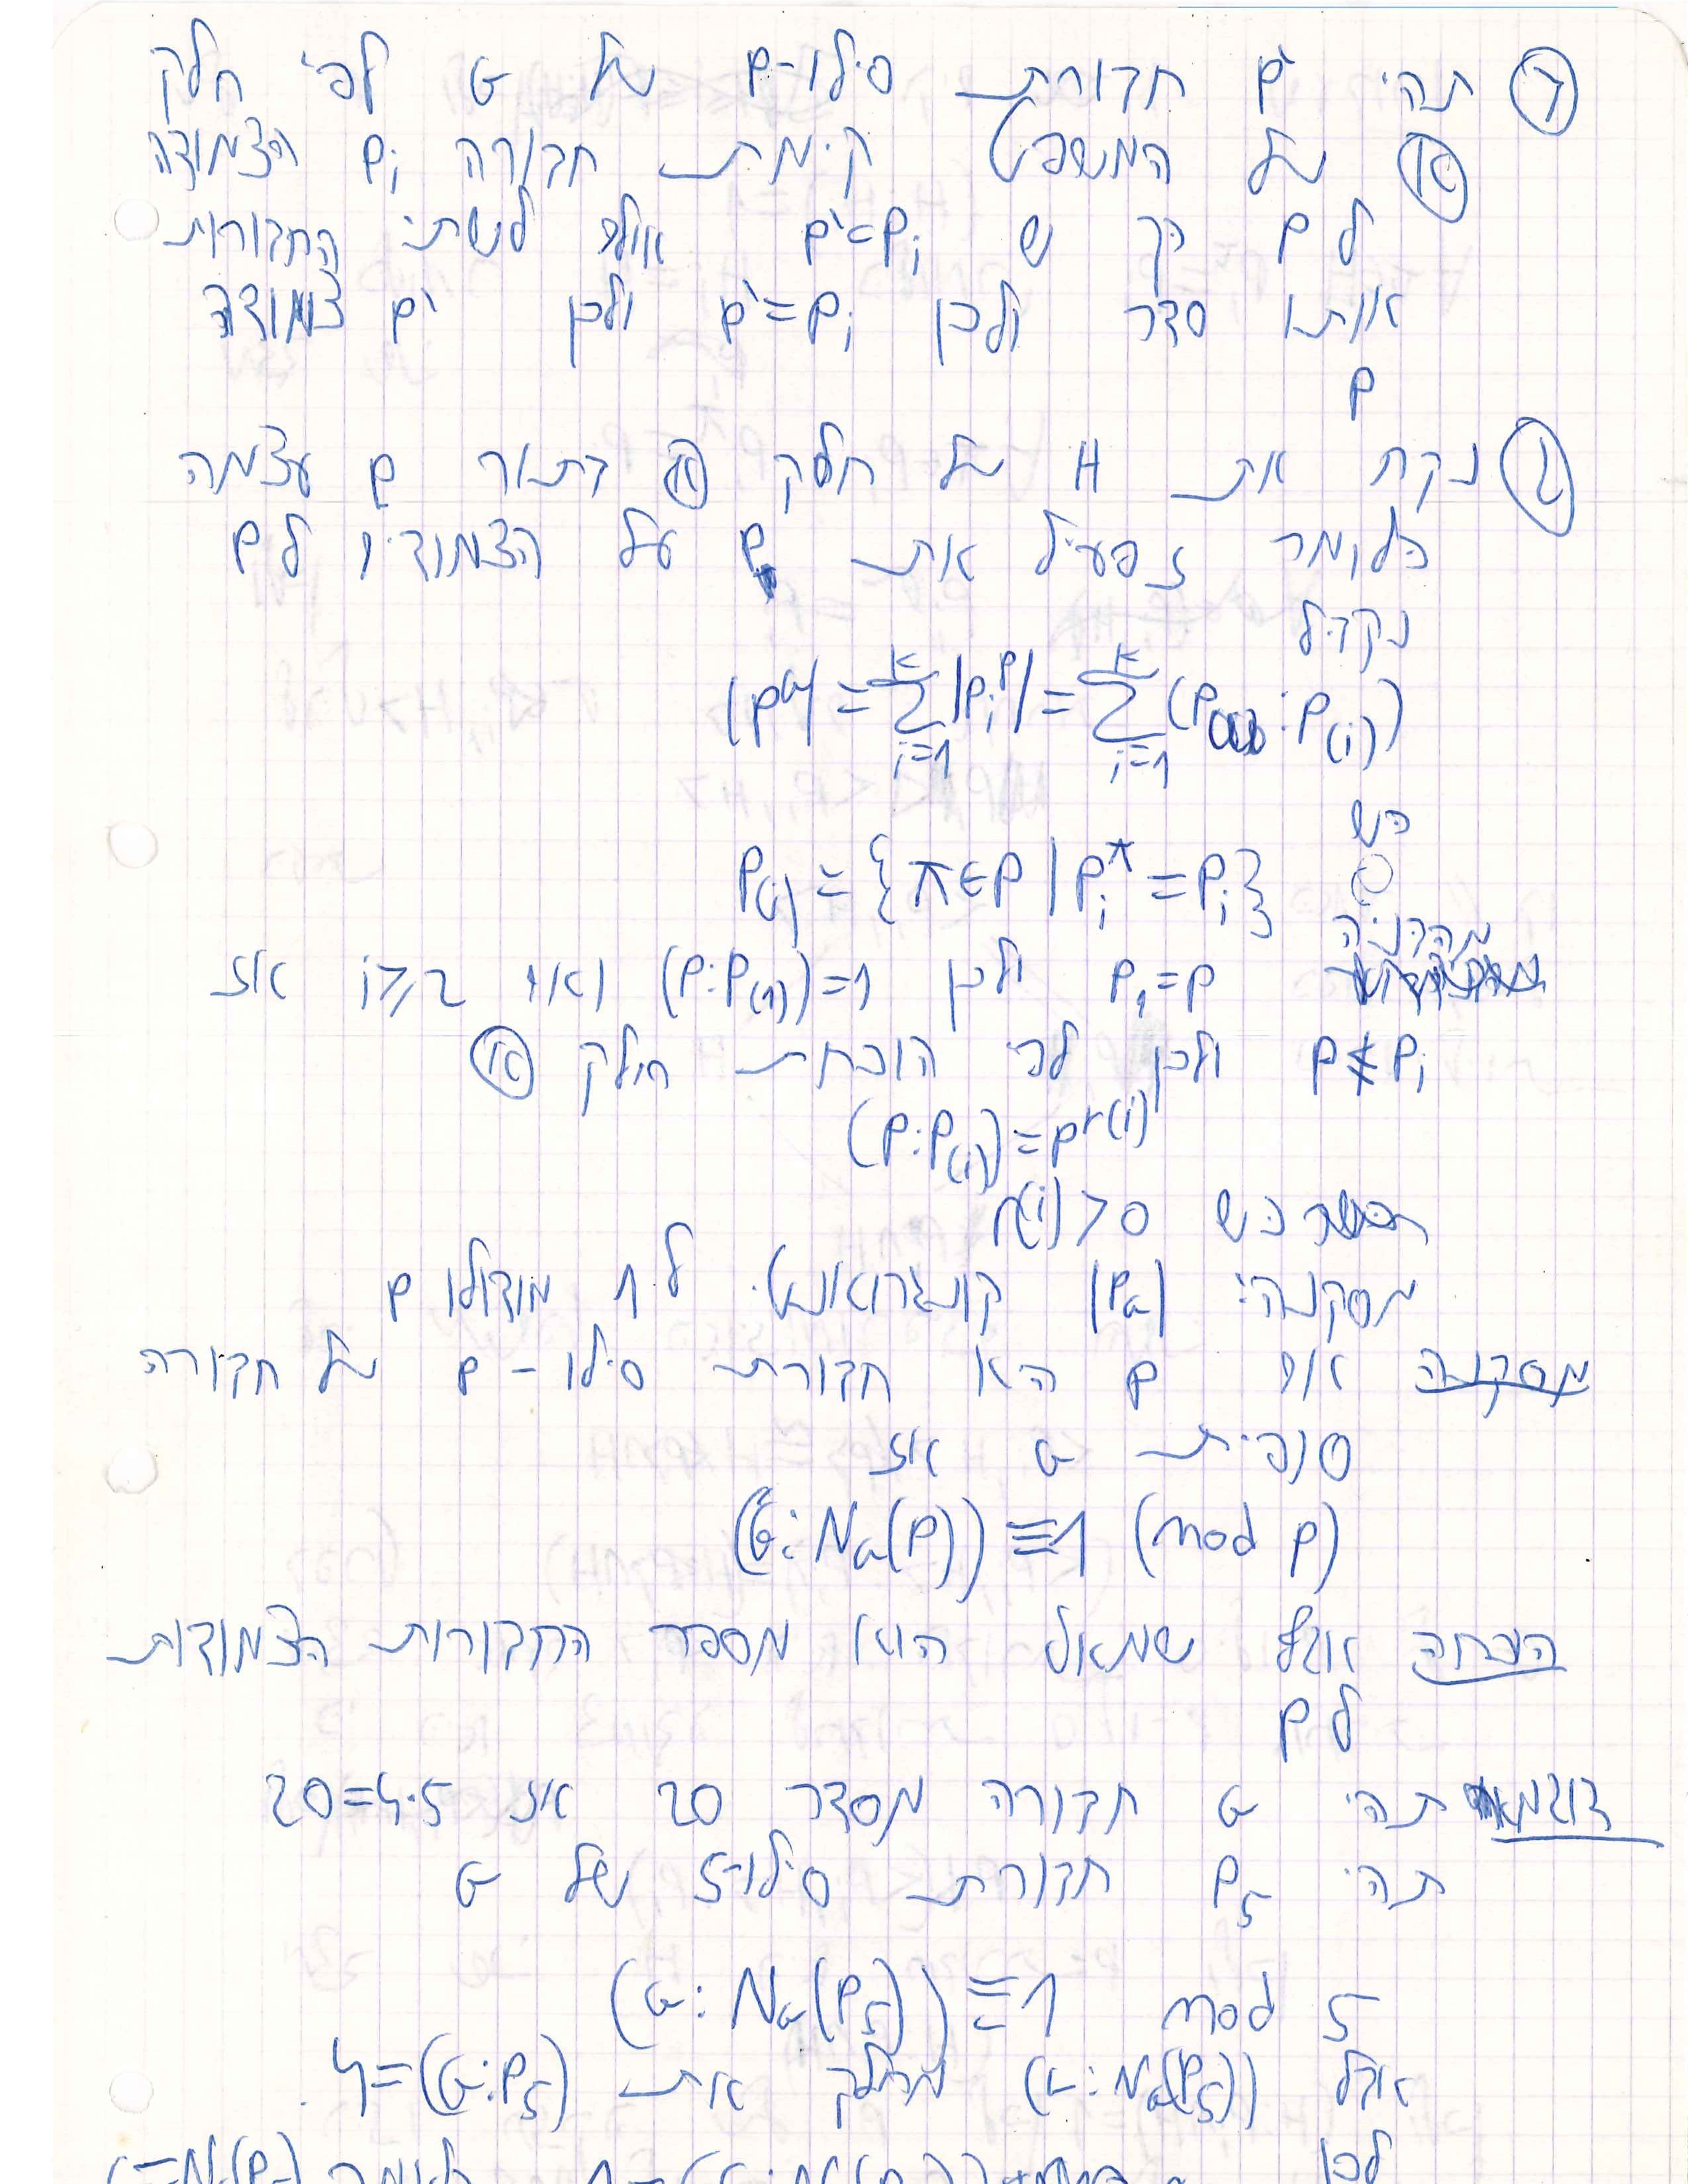 ב תהי P' חבורת סילו-p של G לפי חלק
א של המשפט קיימת חבורה P_i הצמודה
ל P כך ש P'≤P_i אולם לשתי החבורות
אותו סדר ולכן P'=P_i ולכן P' צמודה
P
ג נקח את H של חלק א בתור P עצמה
כלומר נפעיל את P על הצמודים ל P
נקבל
|P^G| = \sum_{i=1}^{k} |P_i^P| = \sum_{i=1}^{k} (P : P_{(i)})
כש
P_{(i)} = {π∈P | P_i^π = P_i}
מהבניה
P_1=P ולכן (P:P_{(1)})=1 ואם i≥2 אז
P≰P_i ולכן לפי הוכחת חלק א
(P:P_{(i)})=p^{r(i)}
כש r(i)>0
מסקנה: |P^G| קונגרואנטי ל 1 מודולו p
מסקנה אם P היא חבורת סילו-p של חבורה
סופית G אז
(G:N_G(P)) ≡ 1 (mod p)
הוכחה אגף שמאל הוא מספר החבורות הצמודות
ל P
דוגמא תהי G חבורה מסדר 20 אז 20=4·5
תהי P_5 חבורת סילו-5 של G
(G:N_G(P_5)) ≡ 1 mod 5
אבל (G:N_G(P_5)) מחלק את (G:P_5)=4.
לכן 1=(G:N_G(P_5)) כלומר G=N_G(P_5)